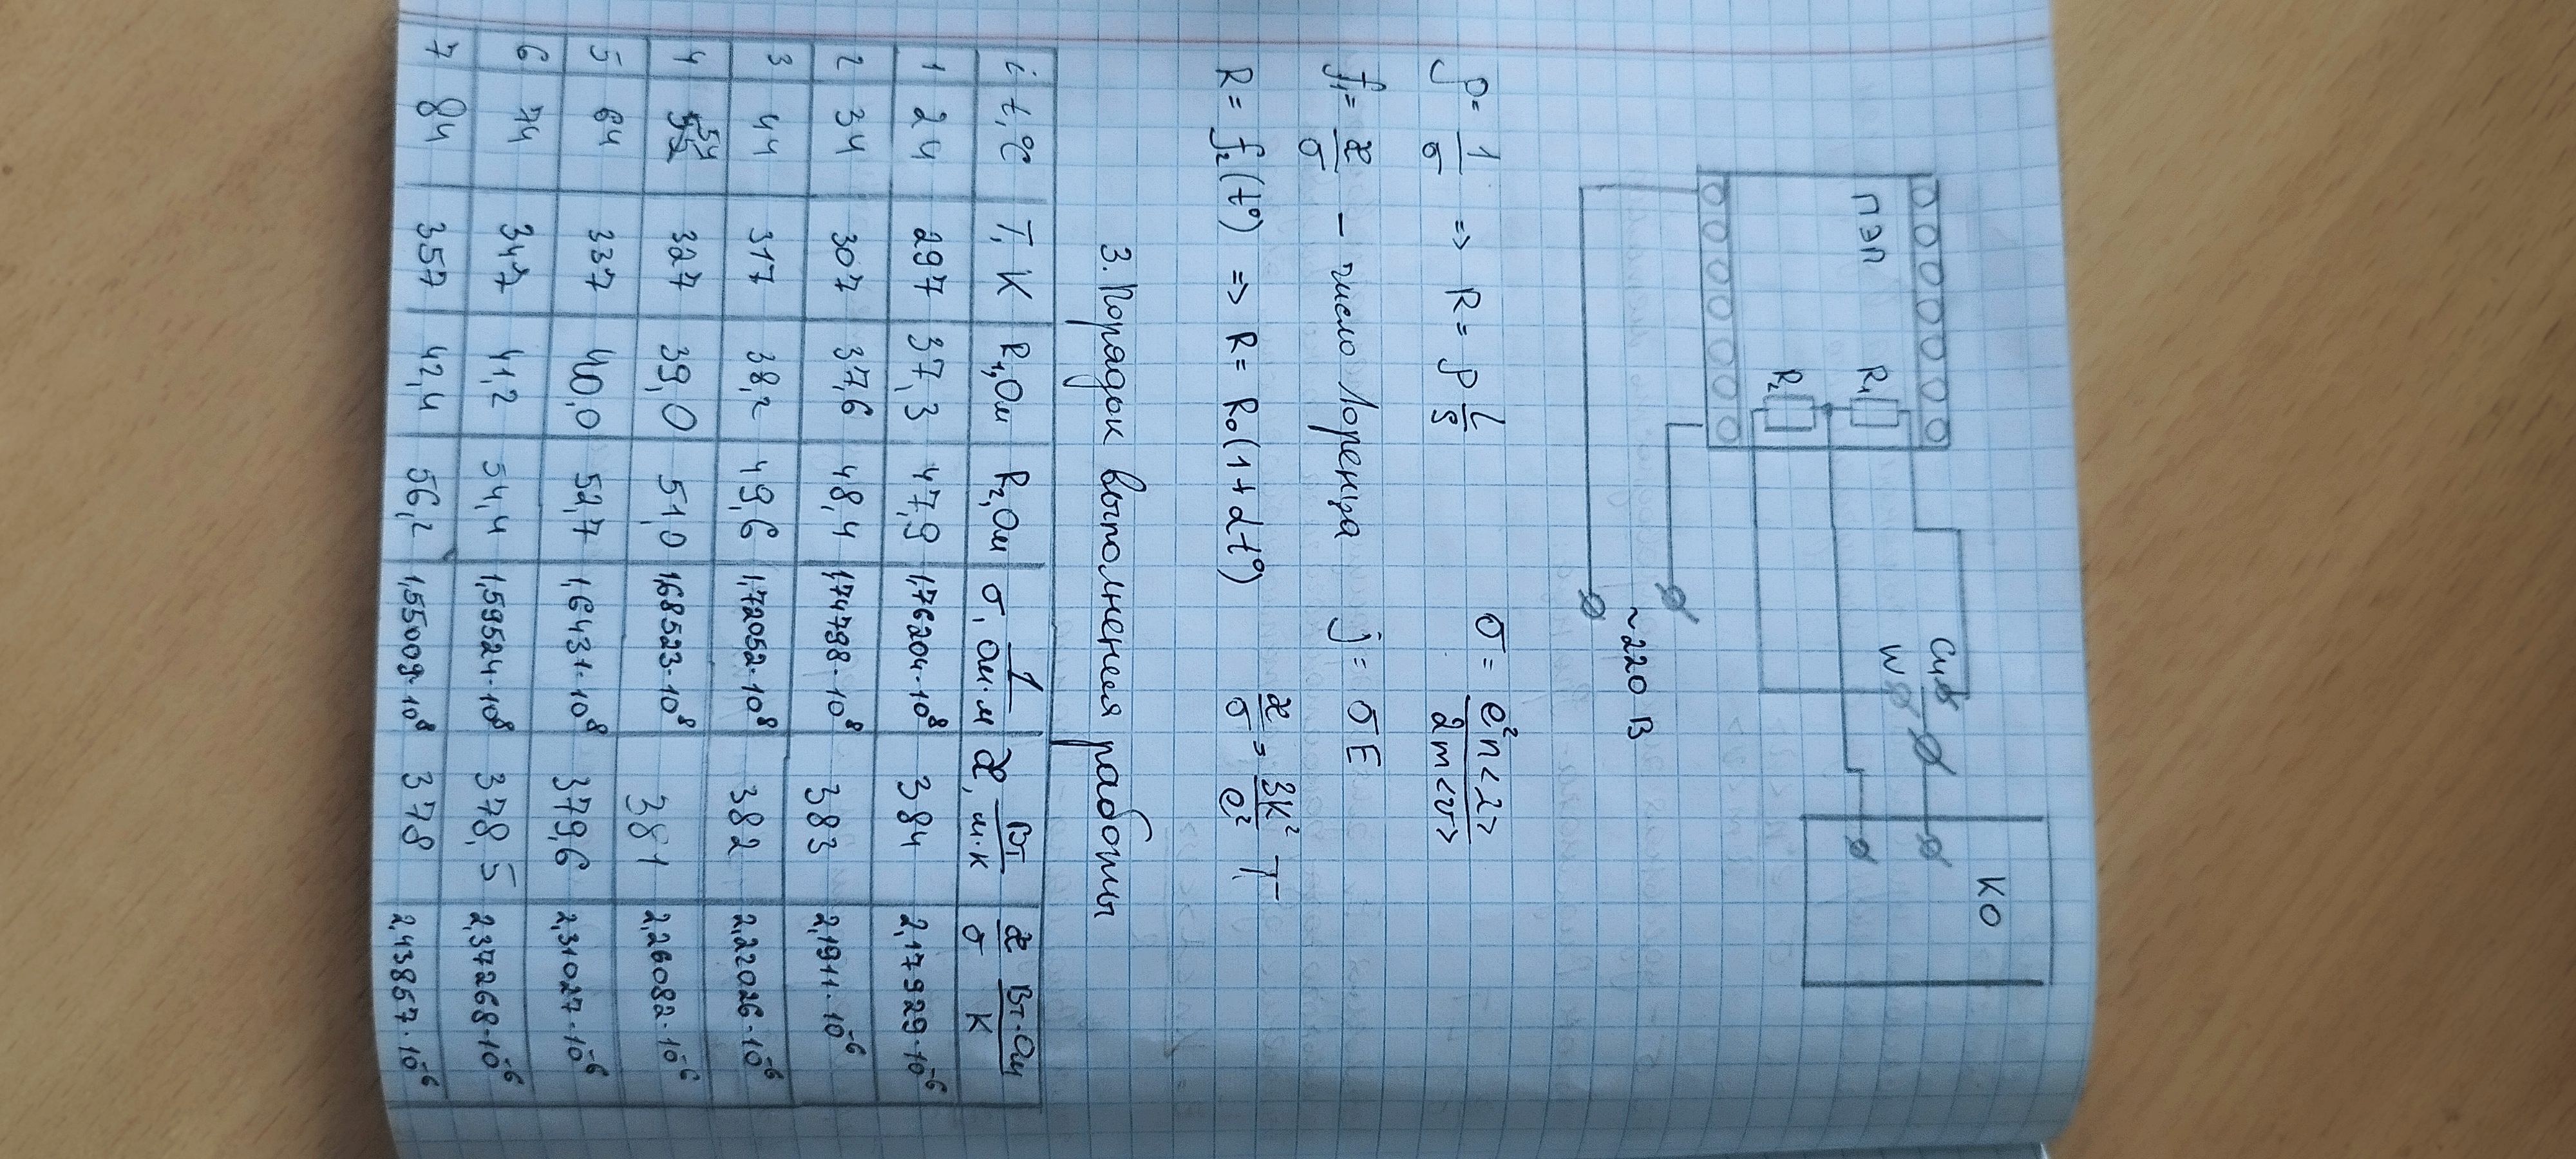 ПЭП
R₁
R₂
Cu
W
КО
~220 В
σ = e²n<λ> / 2m<v>
ρ = 1/σ => R = ρ l/S
f₁ = æ/σ – число Лоренца j = σE
æ/σ = 3k²/e² T
R = f₂(t°) => R = R₀(1+αt°)
3. Порядок выполнения работы
i t,°C T, К R₁,Ом R₂,Ом σ, 1/Ом·м æ, Вт/м·К æ/σ Вт·Ом/К
1 24 297 37,3 47,9 1,76204·10⁸ 384 2,17929·10⁻⁶
2 34 307 37,6 48,4 1,74798·10⁸ 383 2,1911·10⁻⁶
3 44 317 38,2 49,6 1,72052·10⁸ 382 2,22026·10⁻⁶
4 54 327 39,0 51,0 1,68523·10⁸ 381 2,26082·10⁻⁶
5 64 337 40,0 52,7 1,6431·10⁸ 379,6 2,31027·10⁻⁶
6 74 347 41,2 54,4 1,59524·10⁸ 378,5 2,37268·10⁻⁶
7 84 357 42,4 56,2 1,55009·10⁸ 378 2,43857·10⁻⁶